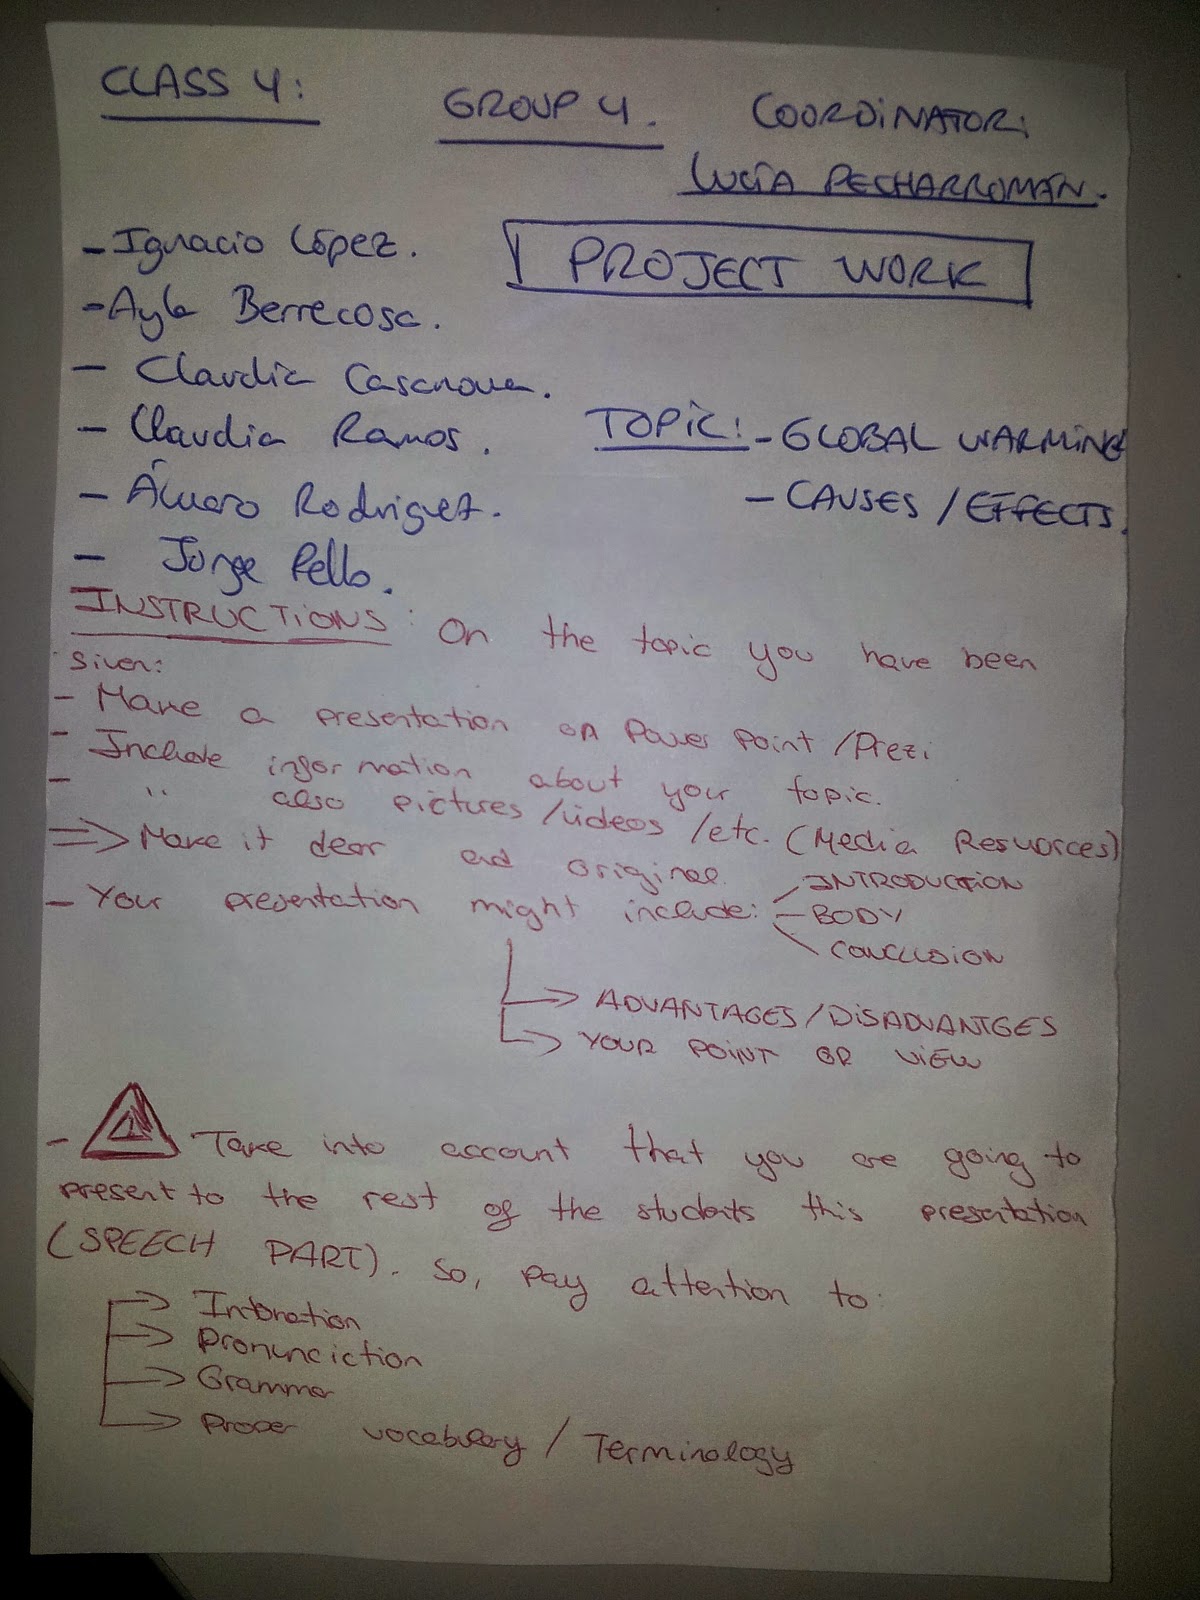 CLASS 4:
GROUP 4.
COORDINATOR:
LUCÍA PECHARROMÁN.
PROJECT WORK
- Ignacio López.
- Ayla Berrecosa.
- Claudia Casanova.
- Claudia Ramos.
- Álvaro Rodriguez.
- Jorge Pello.
TOPIC: - GLOBAL WARMING
- CAUSES / EFFECTS.
INSTRUCTIONS: On the topic you have been
given:
- Make a presentation on Power Point / Prezi
- Include information about your topic.
- " also pictures / videos / etc. (Media Resuorces)
=> Make it clear and original
- Your presentation might include: - INTRODUCTION
- BODY
- CONCLUSION
→ ADVANTAGES / DISADVANTGES
→ YOUR POINT OF VIEW
- Take into account that you are going to
present to the rest of the students this presentation
(SPEECH PART). So, pay attention to:
→ Intonation
→ Pronunciction
→ Grammar
→ Proper vocabulary / Terminology